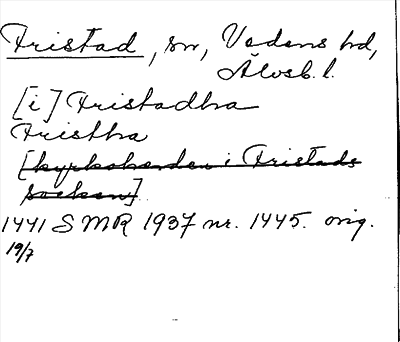 Fristad, sn, Vedens hd,
Älvsb. l.
[i] Fristadha
Fristha
[kyrkoherden i Fristads
socken]
1441 SMR 1937 nr. 1445. orig.
19/7